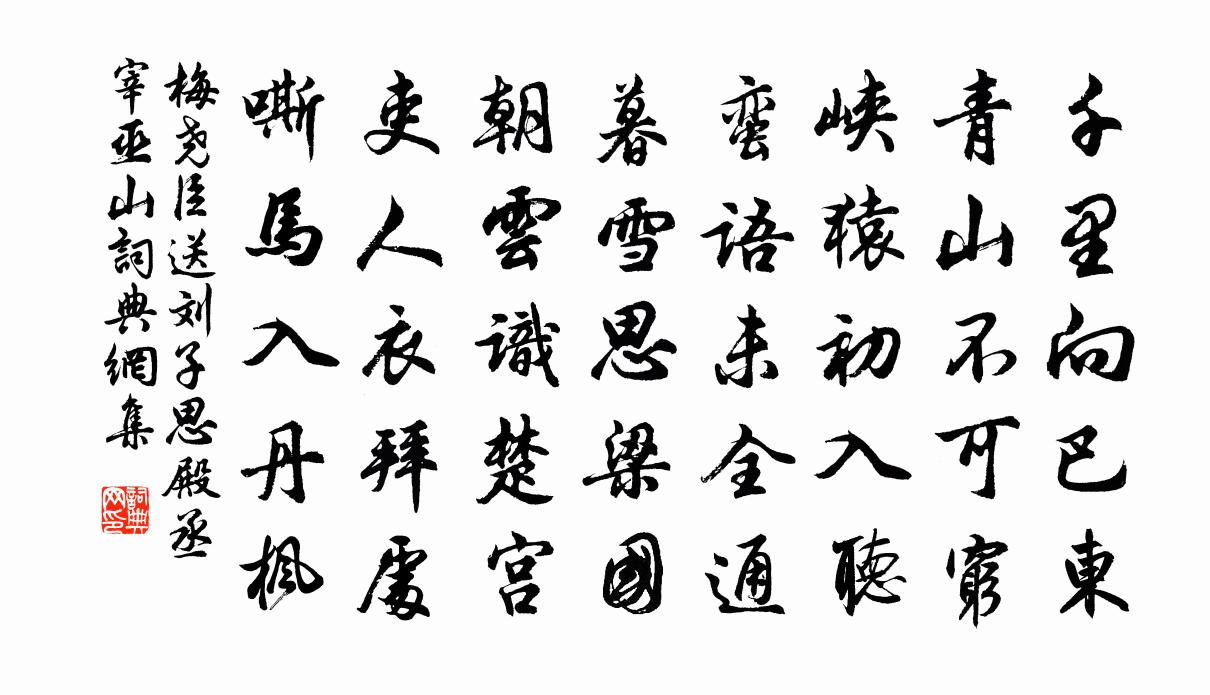 千里向巴東
青山不可窮
峽猿初入聽
蛮語未全通
暮雪思梁國
朝雲識楚宮
吏人衣拜處
嘶馬入丹楓
梅尧臣送刘子思殿丞
宰巫山詞典網集
詞典
网印